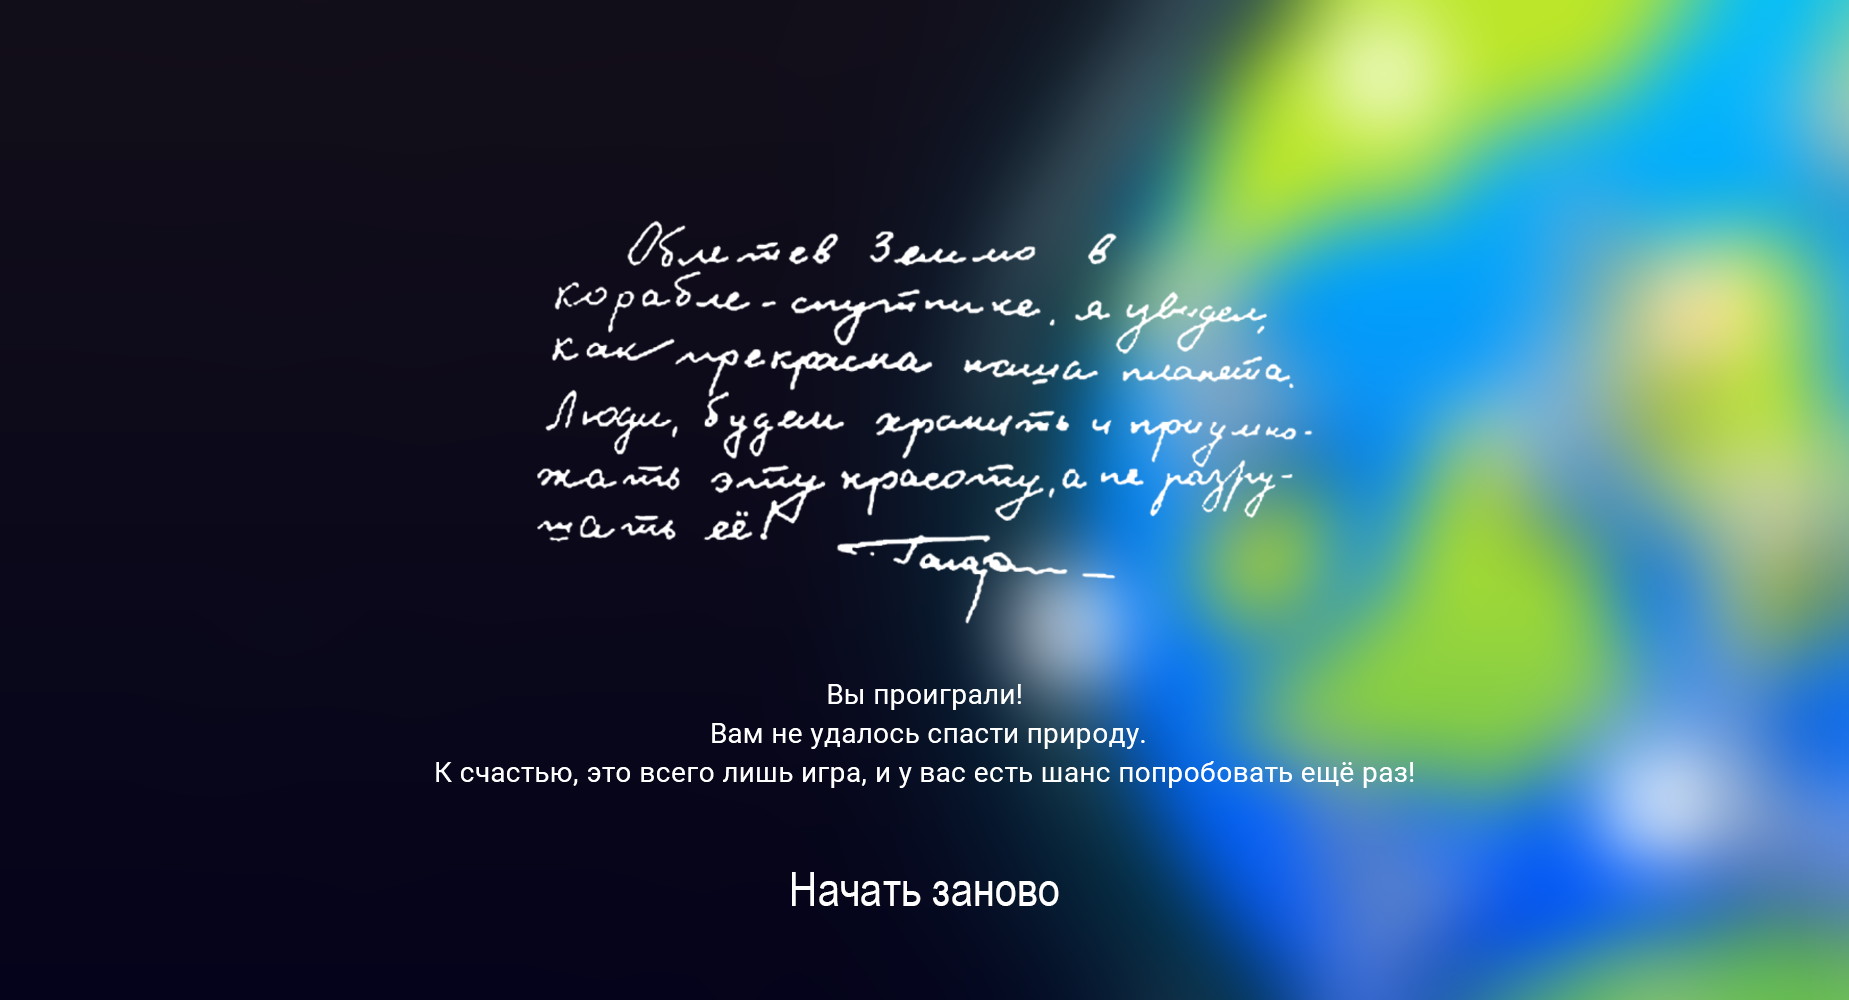 Облетев Землю в
корабле-спутнике, я увидел,
как прекрасна наша планета.
Люди, будем хранить и приумно-
жать эту красоту, а не разру-
шать её!
Гагарин
Вы проиграли!
Вам не удалось спасти природу.
К счастью, это всего лишь игра, и у вас есть шанс попробовать ещё раз!
Начать заново